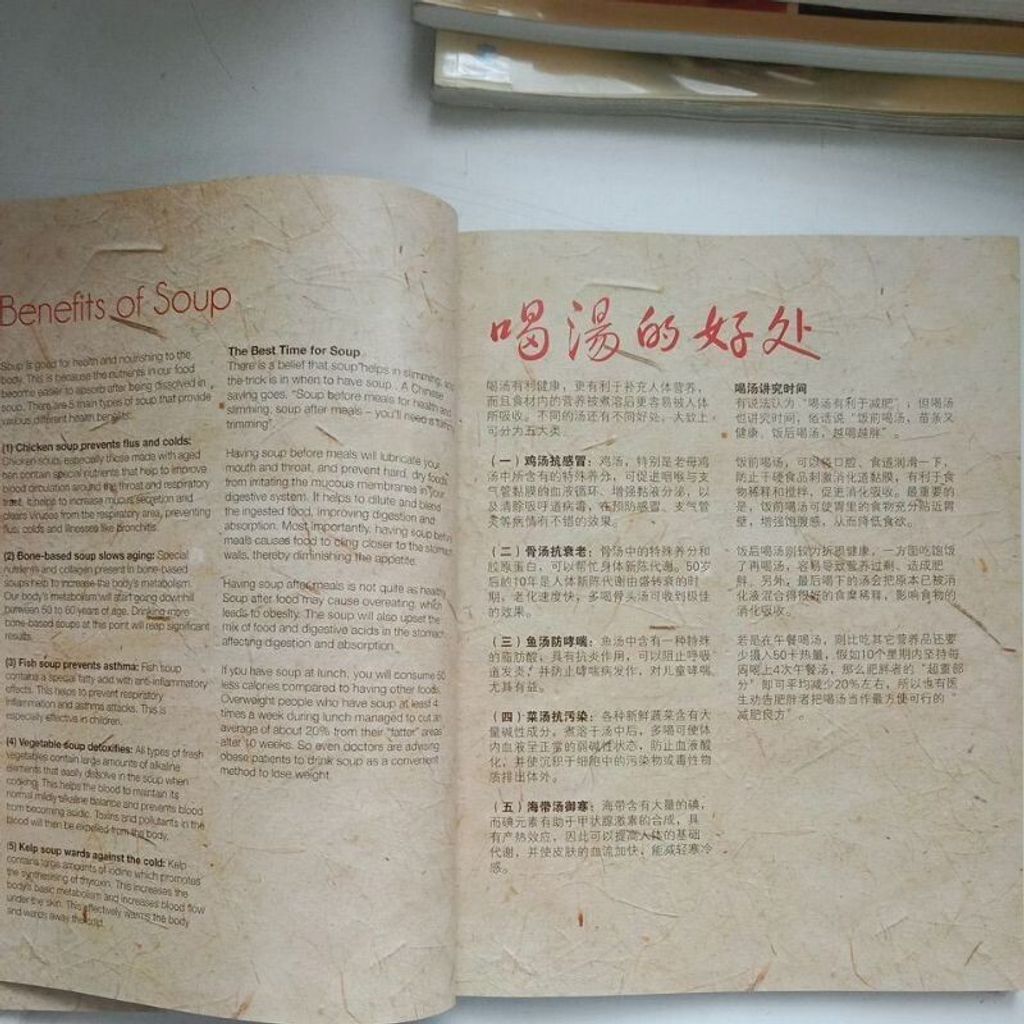 Benefits of Soup
Soup is good for health and nourishing to the
body. This is because the nutrients in our food
become easier to absorb after being dissolved in
soup. There are 5 main types of soup that provide
various different health benefits:
(1) Chicken soup prevents flus and colds:
Chicken soup, especially those made with aged
hen contain special nutrients that help to improve
blood circulation around the throat and respiratory
tract. It helps to increase mucus secretion and
clears viruses from the respiratory area, preventing
flus, colds and illnesses like bronchitis.
(2) Bone-based soup slows aging: Special
nutrients and collagen present in bone-based
soups help to increase the body's metabolism.
Our body's metabolism will start going downhill
between 50 to 60 years of age. Drinking more
bone-based soups at this point will reap significant
results.
(3) Fish soup prevents asthma: Fish soup
contains a special fatty acid with anti-inflammatory
effects. This helps to prevent respiratory
inflammation and asthma attacks. This is
especially effective in children.
(4) Vegetable soup detoxifies: All types of fresh
vegetables contain large amounts of alkaline
elements that easily dissolve in the soup when
cooking. This helps the blood to maintain its
normal mildly alkaline balance and prevents blood
from becoming acidic. Toxins and pollutants in the
blood will then be expelled from the body.
(5) Kelp soup wards against the cold: Kelp
contains large amounts of iodine which promotes
the synthesising of thyroxin. This increases the
body's basic metabolism and increases blood flow
under the skin. This effectively warms the body
and wards away the cold.
The Best Time for Soup
There is a belief that soup helps in slimming,
the trick is in when to have soup. A Chinese
saving goes, "Soup before meals for health and
slimming, soup after meals – you'll need a
trimming".
Having soup before meals will lubricate your
mouth and throat, and prevent hard, dry foods
from irritating the mucous membranes in your
digestive system. It helps to dilute and blend
the ingested food, improving digestion and
absorption. Most importantly, having soup before
meals causes food to cling closer to the stomach
walls, thereby diminishing the appetite.
Having soup after meals is not quite as healthy
Soup after food may cause overeating, which
leads to obesity. The soup will also upset the
mix of food and digestive acids in the stomach
affecting digestion and absorption.
If you have soup at lunch, you will consume 50
less calories compared to having other foods.
Overweight people who have soup at least 4
times a week during lunch managed to cut an
average of about 20% from their "fatter" areas
after 10 weeks. So even doctors are advising
obese patients to drink soup as a convenient
method to lose weight.
喝湯的好处
喝汤有利健康，更有利于补充人体营养，
而且食材内的营养被煮溶后更容易被人体
所吸收。不同的汤还有不同好处，大致上
可分为五大类：
（一）鸡汤抗感冒：鸡汤，特别是老母鸡
汤中所含有的特殊养分，可促进咽喉与支
气管黏膜的血液循环、增强黏液分泌，以
及清除呼吸道病毒，在预防感冒、支气管
炎等病情有不错的效果。
（二）骨汤抗衰老：骨汤中的特殊养分和
胶原蛋白，可以帮忙身体新陈代谢。50岁
后的10年是人体新陈代谢由盛转衰的时
期，老化速度快，多喝骨头汤可收到极佳
的效果。
（三）鱼汤防哮喘：鱼汤中含有一种特殊
的脂肪酸，具有抗炎作用，可以阻止呼吸
道发炎，并防止哮喘病发作，对儿童哮喘
尤其有益。
（四）菜汤抗污染：各种新鲜蔬菜含有大
量碱性成分，煮溶于汤中后，多喝可使体
内血液呈正常的弱碱性状态，防止血液酸
化，并使沉积于细胞中的污染物或毒性物
质排出体外。
（五）海带汤御寒：海带含有大量的碘，
而碘元素有助于甲状腺激素的合成，具
有产热效应，因此可以提高人体的基础
代谢，并使皮肤的血流加快，能减轻寒冷
感。
喝汤讲究时间
有说法认为"喝汤有利于减肥"，但喝汤
也讲究时间，俗话说"饭前喝汤，苗条又
健康，饭后喝汤，越喝越胖"。
饭前喝汤，可以将口腔、食道润滑一下，
防止干硬食品刺激消化道黏膜，有利于食
物稀释和搅拌，促进消化吸收。最重要的
是，饭前喝汤可使胃里的食物充分贴近胃
壁，增强饱腹感，从而降低食欲。
饭后喝汤则较为折损健康，一方面吃饱饭
了再喝汤，容易导致营养过剩、造成肥
胖。另外，最后喝下的汤会把原本已被消
化液混合得很好的食糜稀释，影响食物的
消化吸收。
若是在午餐喝汤，则比吃其它营养品还要
少摄入50卡热量，假如10个星期内坚持每
周喝上4次午餐汤，那么肥胖者的"超重部
分"却可平均减少20%左右，所以也有医
生劝告肥胖者把喝汤当作最方便可行的"
减肥良方"。